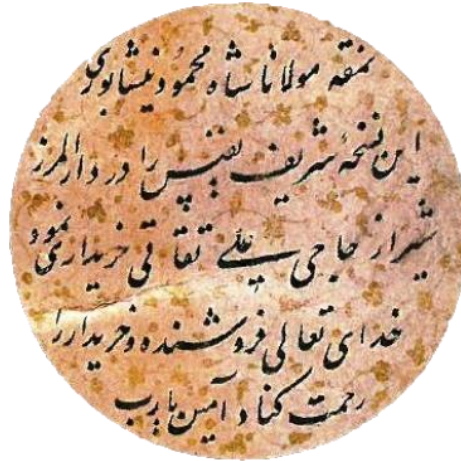 نمقه مولانا شاه محمود نیشابوری
این نسخهٔ شریف نفیس را در دار المرز
شیراز حاجی علی تفاتی خریداری نمود
خدای تعالی فروشنده و خریدار را
رحمت کناد آمین یا رب